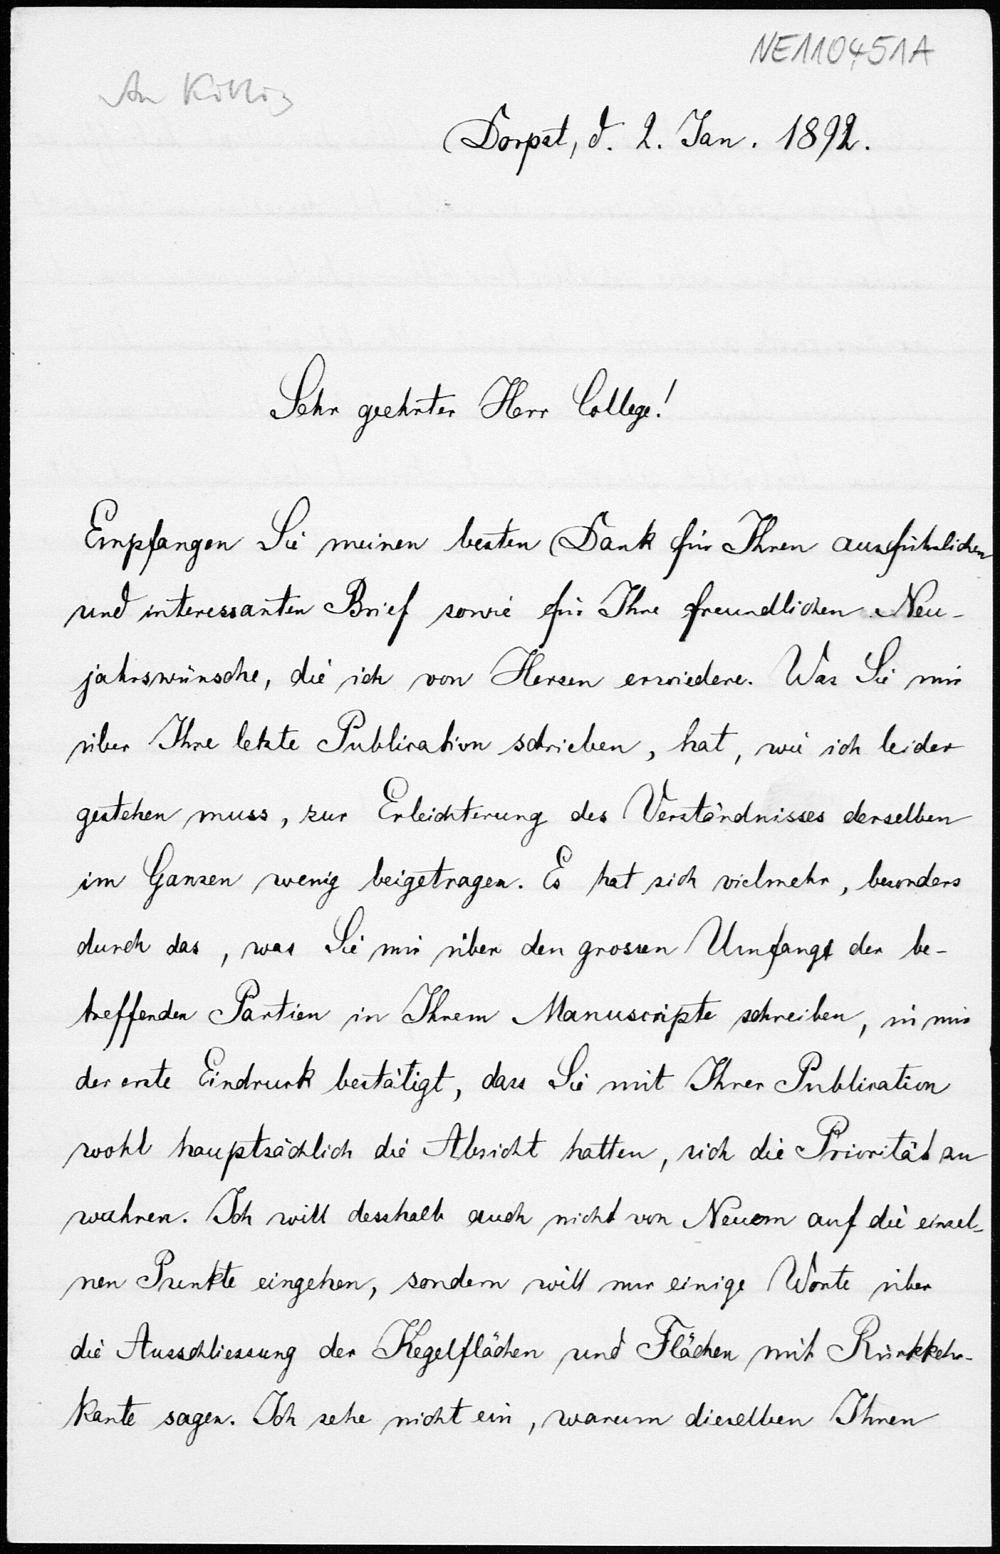 NE110451A
An Killing
Dorpat, d. 2. Jan. 1892.
Sehr geehrter Herr College!
Empfangen Sie meinen besten Dank für Ihren ausführlichen
und interessanten Brief sowie für Ihre freundlichen Neu-
jahrswünsche, die ich von Herzen erwiedere. Was Sie mir
über Ihre letzte Publication schrieben, hat, wie ich leider
gestehen muss, zur Erleichterung des Verständnisses derselben
im Ganzen wenig beigetragen. Es hat sich vielmehr, besonders
durch das, was Sie mir über den grossen Umfang der be-
treffenden Partien in Ihrem Manuscripte schreiben, in mir
der erste Eindruck bestätigt, dass Sie mit Ihrer Publication
wohl hauptsächlich die Absicht hatten, sich die Priorität zu
wahren. Ich will desshalb auch nicht von Neuem auf die einzel-
nen Punkte eingehen, sondern will nur einige Worte über
die Ausschliessung der Kegelflächen und Flächen mit Rückkehr-
kante sagen. Ich sehe nicht ein, warum dieselben Ihnen